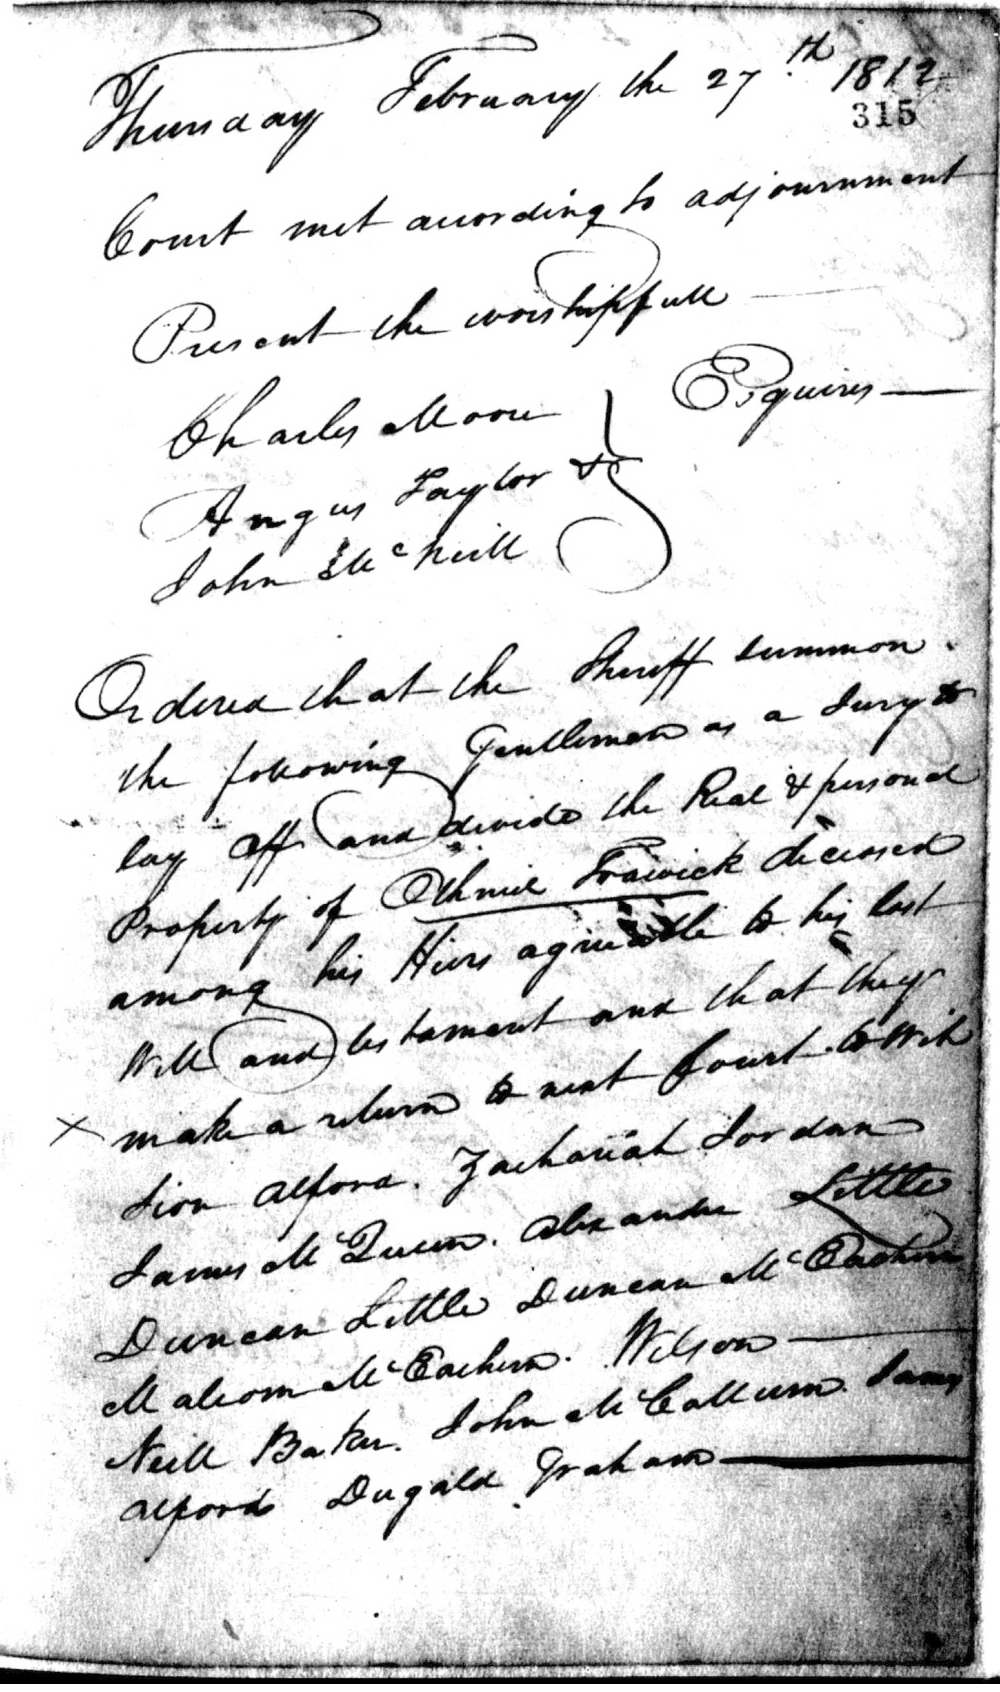 Thursday February the 27th 1812
315
Court met according to adjournment
Present the worshipfull
Charles Moore
Esquires
Angus Taylor &
John McNeill
Ordered that the Sheriff summon
the following Gentlemen as a Jury to
lay off and divide the Real & personal
Property of Othniel Trawick deceased
among his Heirs agreeable to his last
Will and testament and that they
make a return to next Court to Wit
Sion Alford. Zachariah Jordan
James McQueen. Alexander Little
Duncan Little Duncan McEachern
Malcom McEachern. Wilson
Neill Baker. John McCallum. James
Alford Dugald Graham